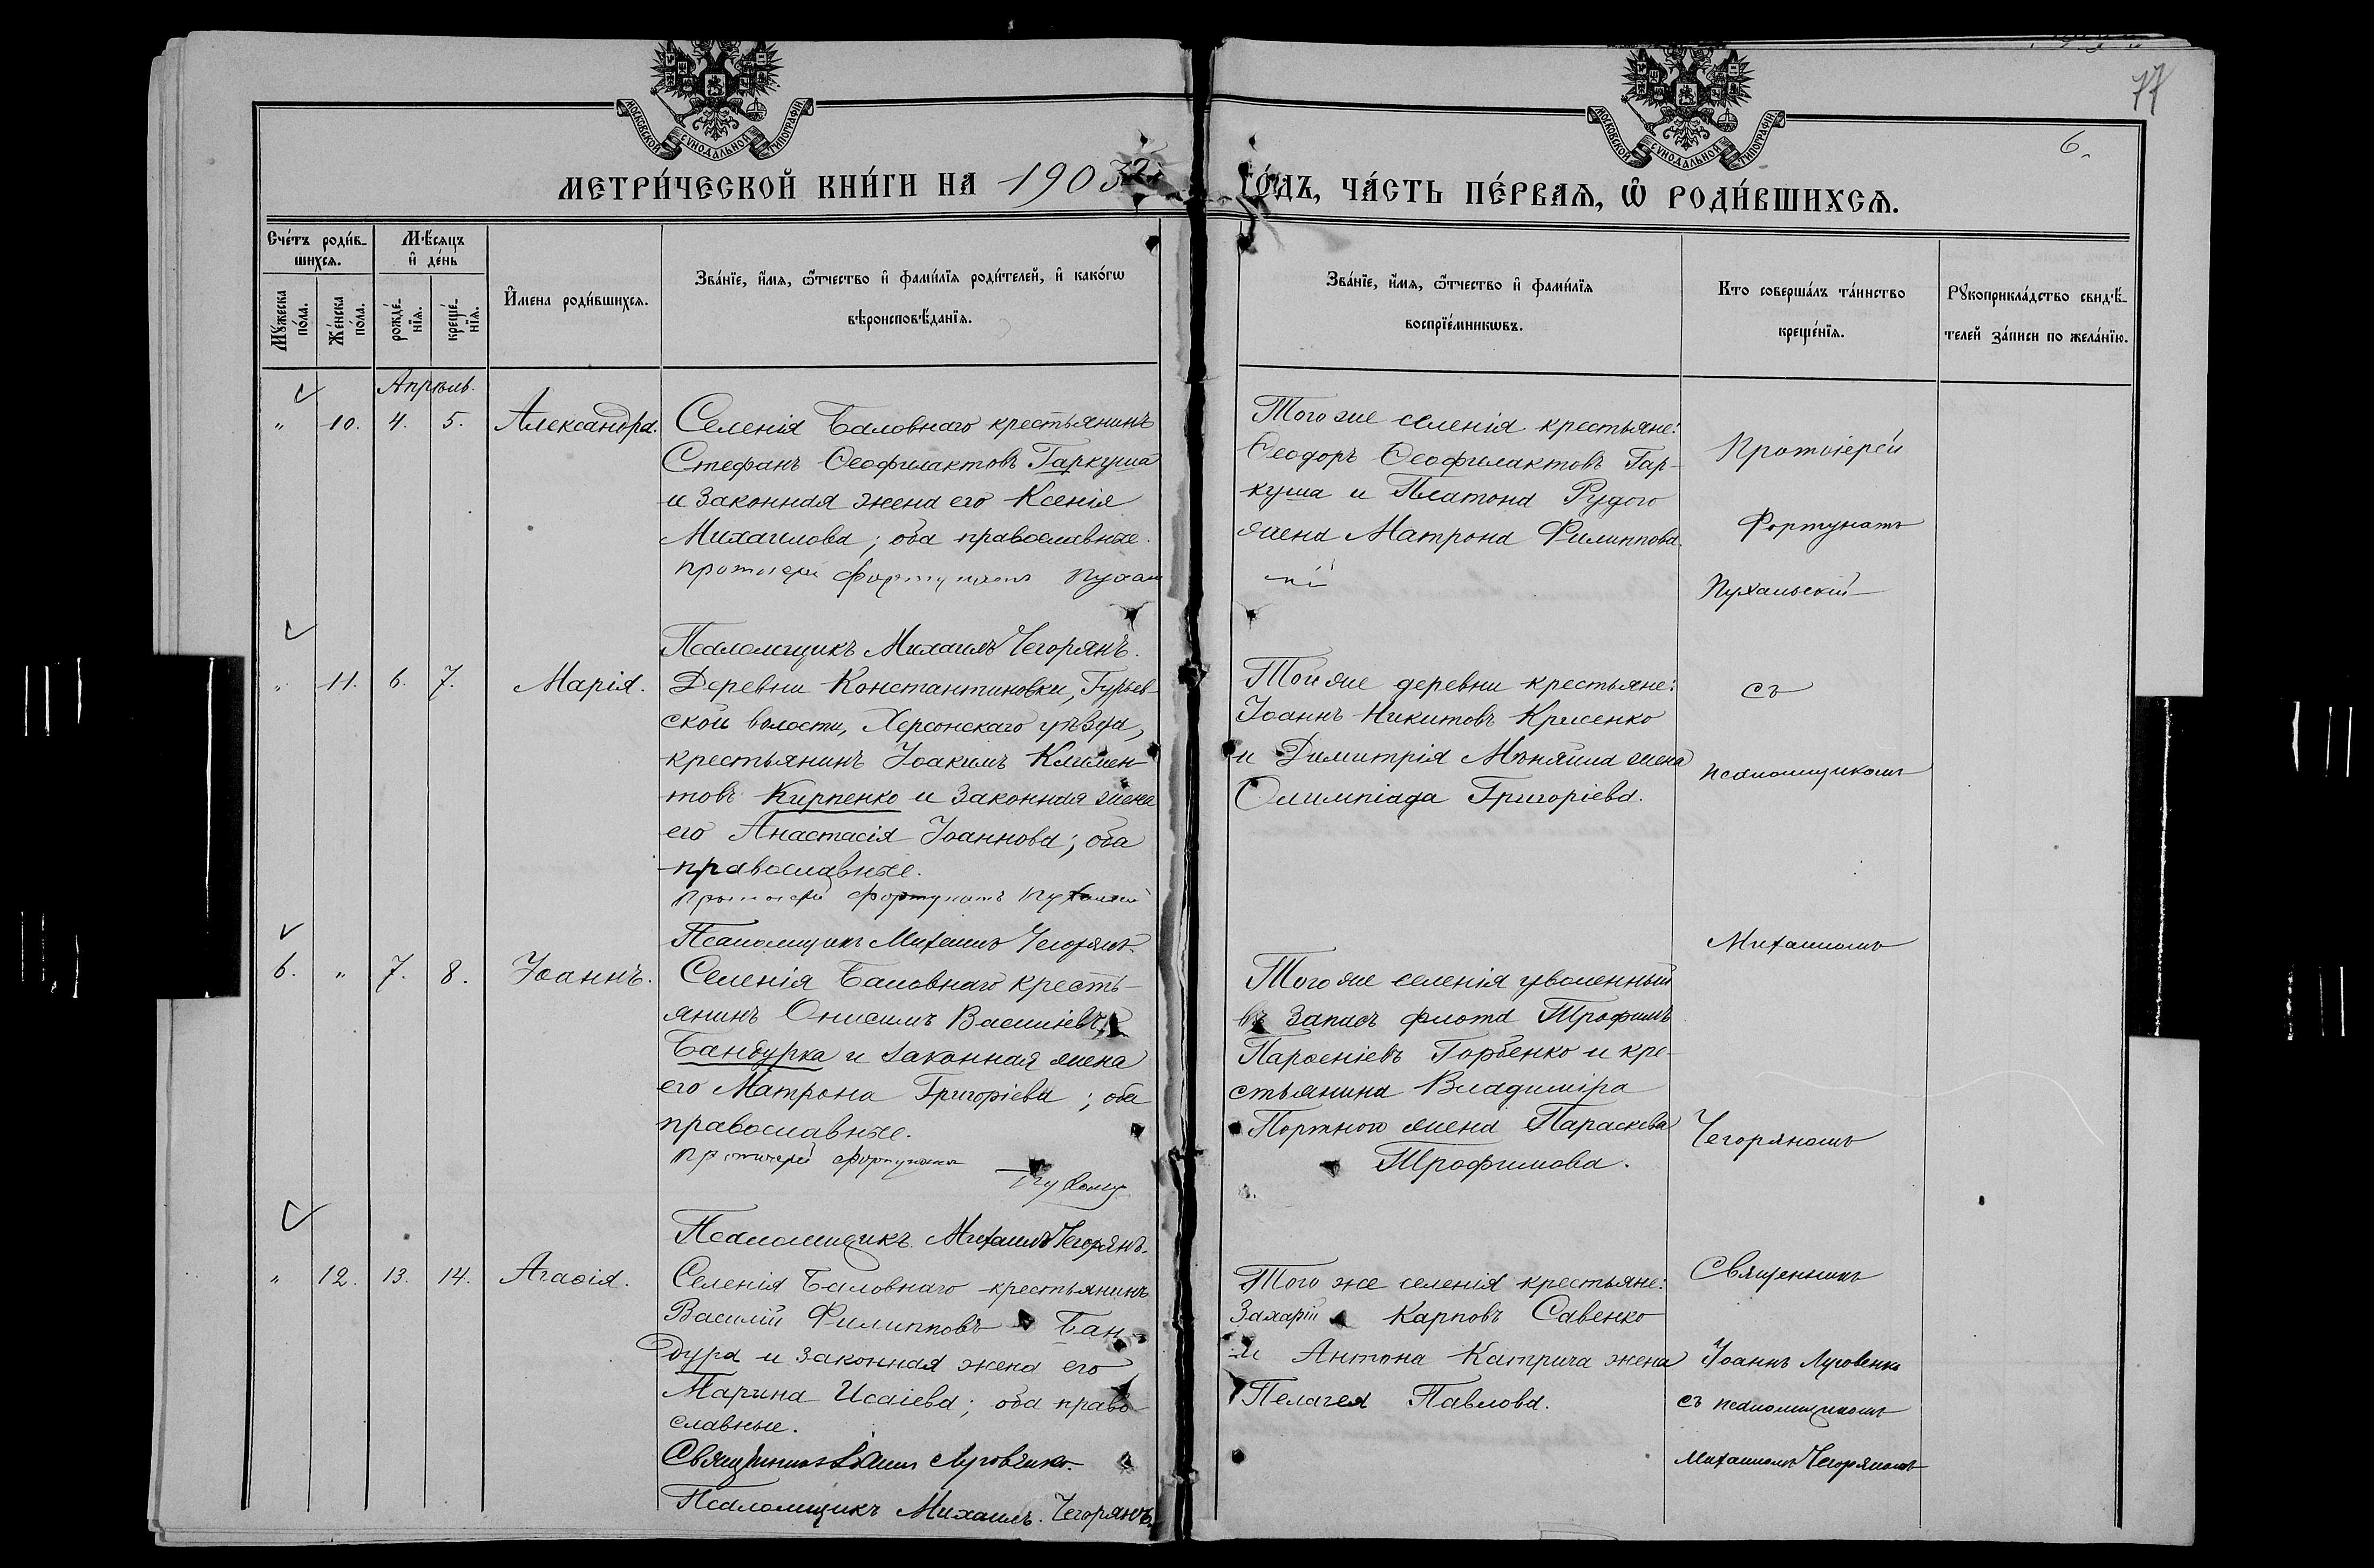 МОСКОВСКОЙ СѴНОДАЛЬНОЙ ТИПОГРАФІИ
МОСКОВСКОЙ СѴНОДАЛЬНОЙ ТИПОГРАФІИ
77
6.
МЕТРИ́ЧЕСКОЙ КНИ́ГИ НА 1903
ГО́ДЪ, ЧА́СТЬ ПЕ́РВАѦ, Ѿ РОДИ́ВШИХСѦ.
Сче́тъ роди́в-
шихсѧ.
Мꙋ́жеска по́ла.
Же́нска по́ла.
Мѣ́сѧцъ
и҆ де́нь
рожде́-
нїѧ.
креще́-
нїѧ.
И҆мена роди́вшихсѧ.
Зва́нїе, и҆́мѧ, ѻ҆́тчество и҆ фами́лїѧ роди́телей, и҆ како́гѡ
вѣроисповѣ́данїѧ.
Зва́нїе, и҆́мѧ, ѻ҆́тчество и҆ фами́лїѧ
воспрїе́мникѡвъ.
Кто соверша́лъ та́инство
креще́нїѧ.
Рꙋкоприкла́дство свидѣ́-
телей за́писи по жела́нїю.
Апрѣль.
" 10. 4. 5. Александра.
Селенія Баловнаго крестьянинъ
Стефанъ Ѳеофилактовъ Гаркуша
и законная жена его Ксенія
Михаилова; оба православные.
Протоіерей Фортунатъ Пухаль
Псаломщикъ Михаилъ Чегорянъ.
Того же селенія крестьяне:
Ѳеодоръ Ѳеофилактовъ Гар-
куша и Платона Рудого
жена Матрона Филиппова.
Протоіерей
Фортунатъ
Пухальскій
" 11. 6. 7. Марія.
Деревни Константиновки, Гурьев-
ской волости, Херсонскаго уѣзда,
крестьянинъ Іоакимъ Климен-
товъ Кирпенко и законная жена
его Анастасія Іоаннова; оба
православные.
Протоіерей Фортунатъ
Псаломщикъ Михаилъ Чегорянъ.
Той же деревни крестьяне:
Іоаннъ Никитовъ
и Димитрія жена
Олимпіада Григоріева.
съ
псаломщикомъ
Михаиломъ
6. " 7. 8. Іоаннъ.
Селенія Баловнаго кресть-
янинъ Онисимъ Василіевъ
Бандурка и законная жена
его Матрона Григоріева; оба
православные.
Протоіерей Фортунатъ
Псаломщикъ Михаилъ Чегорянъ.
Того же селенія уволенный
въ запасъ флота Трофимъ
Парѳеніевъ Горбенко и кре-
стьянина Владиміра
Портного жена Параскева
Трофимова.
Чегоряномъ
" 12. 13. 14. Агаѳія.
Селенія Баловнаго крестьянинъ
Василій Филипповъ Бан-
дура и законная жена его
Марина Исаіева; оба право-
славные.
Священникъ Іоаннъ Луговенко.
Псаломщикъ Михаилъ Чегорянъ.
Того же селенія крестьяне:
Захарій Карповъ Савенко
и Антона Катрича жена
Пелагея Павлова.
Священникъ
Іоаннъ Луговенко
съ псаломщикомъ
Михаиломъ Чегоряномъ